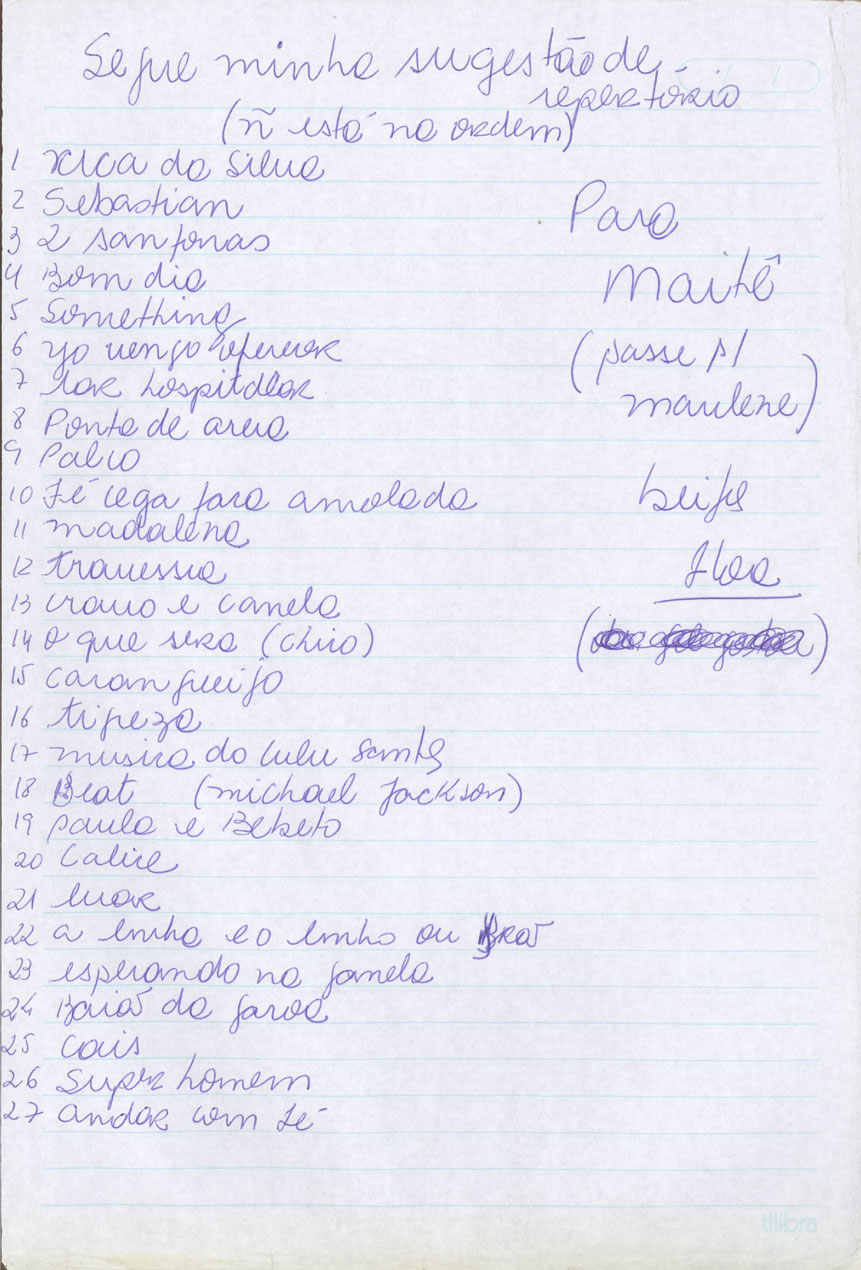 Segue minha sugestão de
repertório
(ñ está na ordem)
1 xica da Silva
2 Sebastian
3 2 sanfonas
4 Bom dia
5 Something
6 yo vengo oferecer
7 lar hospitalar
8 Ponta de areia
9 Palco
10 Fé cega faca amolada
11 madalena
12 travessia
13 cravo e canela
14 o que sera (chico)
15 carangueijo
16 tristeza
17 musica do lulu santos
18 Beat (michael Jackson)
19 paula e Bebeto
20 Calice
21 luar
22 a linha e o linho ou
23 esperando na janela
24 Baiao da garoa
25 cais
26 super homem
27 andar com fé
Para
Maitê
(passe p/
marilene)
beijos
tilibra